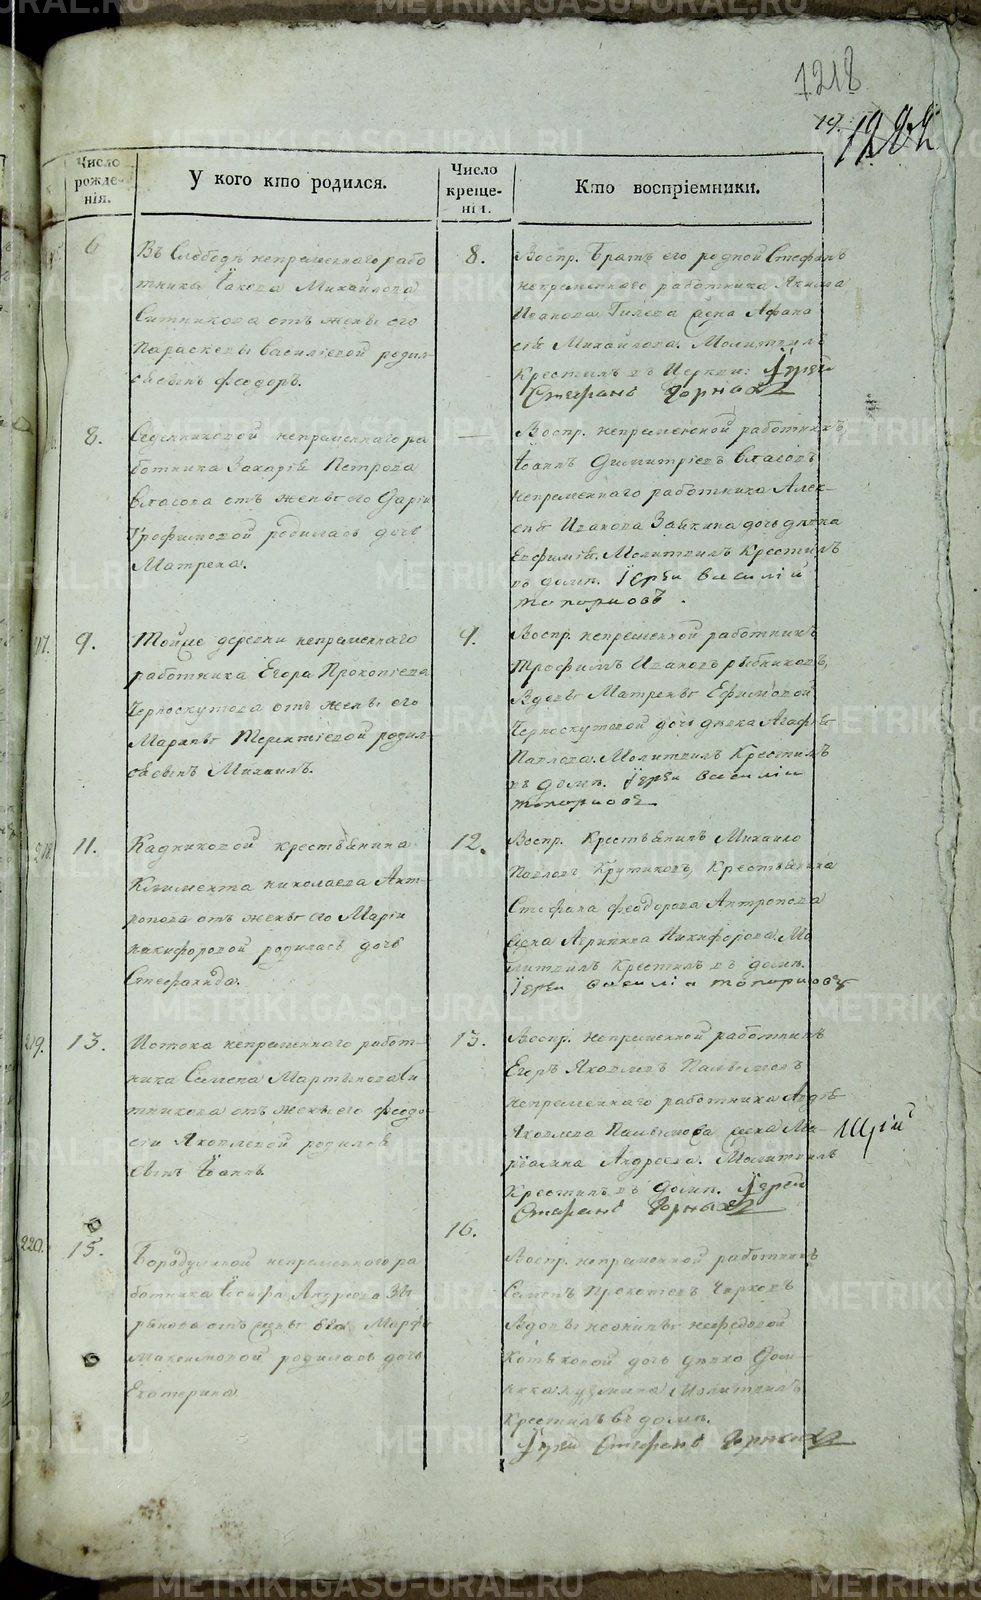 1218
Число рожде-нія.
У кого кто родился.
Число креще-нія.
Кто воспріемники.
6
Въ Слободѣ непремѣннаго рабо
тника Іакова Михайлова
Ситникова отъ жены его
Параскевы Василіевой родил-
ся сынъ Феодоръ.
8.
Воспр. Братъ его родной Стефанъ
непремѣннаго работника
Иванова Гилева жена Афана
сія Михайлова. Молитвилъ
Крестилъ въ Церкви: Іерей
Стефанъ Горныхъ
8.
непремѣннаго ра
ботника Захарія Петрова
Власова отъ жены его Даріи
Трофимовой родилась дочь
Матрена.
—
Воспр. непремѣнной работникъ
Іоаннъ Димитріевъ Власовъ
непремѣннаго работника Алек-
сея Иванова дочь дѣвка
Евфимія. Молитвилъ Крестилъ
въ домѣ. Іерей Василій
Топорковъ.
9.
деревни непремѣннаго
работника Егора Прокопіева
Черноскутова отъ жены его
Марины Терентіевой родил-
ся сынъ Михаилъ.
9.
Воспр. непремѣнной работникъ
Трофимъ Ивановъ Рыбниковъ,
Вдовы Матрены Ефимовой
Черноскутовой дочь дѣвка Агафья
Павлова. Молитвилъ Крестилъ
въ домѣ. Іерей Василій
Топорковъ
218
11.
Кадниковой крестьянина
Климента Николаева Ант-
ропова отъ жены его Маріи
Никифоровой родилась дочь
Стефанида.
12.
Воспр. Крестьянинъ Михайло
Павловъ Крутиковъ, Крестьянина
Стефана Феодорова Антропова
жена Агрипина Никифорова. Мо
литвилъ Крестилъ въ домѣ.
Іерей Василій Топорковъ
219.
13.
Истока непремѣннаго работ-
ника Семена Мартынова Си
тникова отъ жены его Феодо-
сіи Яковлевой родился
сынъ Іоаннъ.
13.
Воспр. непремѣнной работникъ
Егоръ Яковлевъ
непремѣннаго работника Андрея
Яковлева жена Ма-
Андреева. Молитвилъ
Крестилъ въ домѣ. Іерей
Стефанъ Горныхъ
щій
220.
15.
Бородулиной непремѣннаго ра
ботника Іосифа Андреева Звѣ
рькова отъ жены его Марфы
Максимовой родилась дочь
Екатерина
16.
Воспр. непремѣнной работникъ
Семенъ Прокопьевъ
Вдовы Нефедовой
дочь дѣвка Дом-
ника Кузмина Молитвилъ
Крестилъ въ домѣ.
Іерей Стефанъ Горныхъ
METRIKI.GASO-URAL.RU